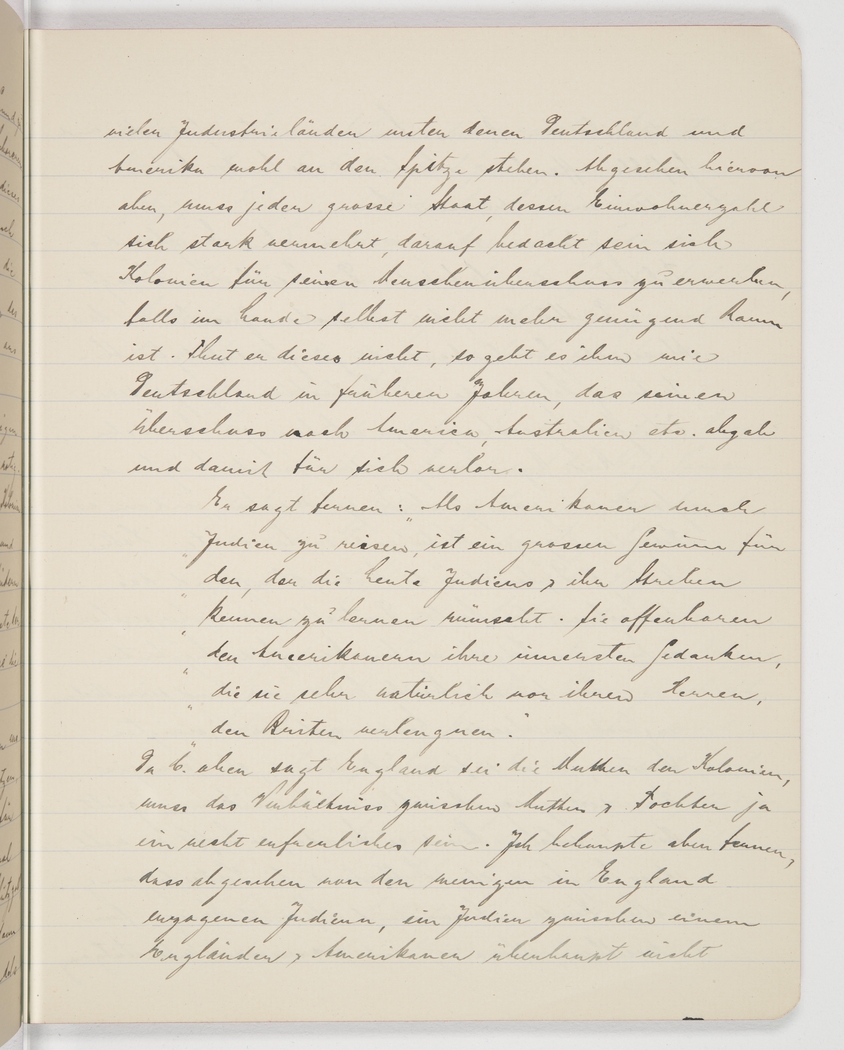 vielen Industrieländer unter denen Deutschland und
Amerika wohl an der Spitze stehen. Abgesehen hiervon
aber, muss jeder grosse Staat, dessen Einwohnerzahl
sich stark vermehrt, darauf bedacht sein sich
Kolonien für seinen Menschenüberschuss zu erwerben,
falls im Lande selbst nicht mehr genügend Raum
ist. Thut er dieses nicht, so geht es ihm wie
Deutschland in früheren Jahren, das seinen
Überschuss nach America, Australien etc. abgab
und damit für sich verlor.
Er sagt ferner: „Als Amerikaner durch
„Indien zu reisen, ist ein grosser Gewinn für
„den, der die Leute Indiens & ihr Streben
„kennen zu lernen wünscht. Sie offenbaren
„den Amerikanern ihre innersten Gedanken,
„die sie sehr natürlich vor ihren Herren,
„den Briten verleugnen."
Da C. aber sagt England sei die Mutter der Kolonien,
muss das Verhältniss zwischen Mutter & Tochter ja
ein recht erfreuliches sein. Ich behaupte aber ferner,
dass abgesehen von den wenigen in England
erzogenen Indiern, ein Indier zwischen einem
Engländer & Amerikaner überhaupt nicht